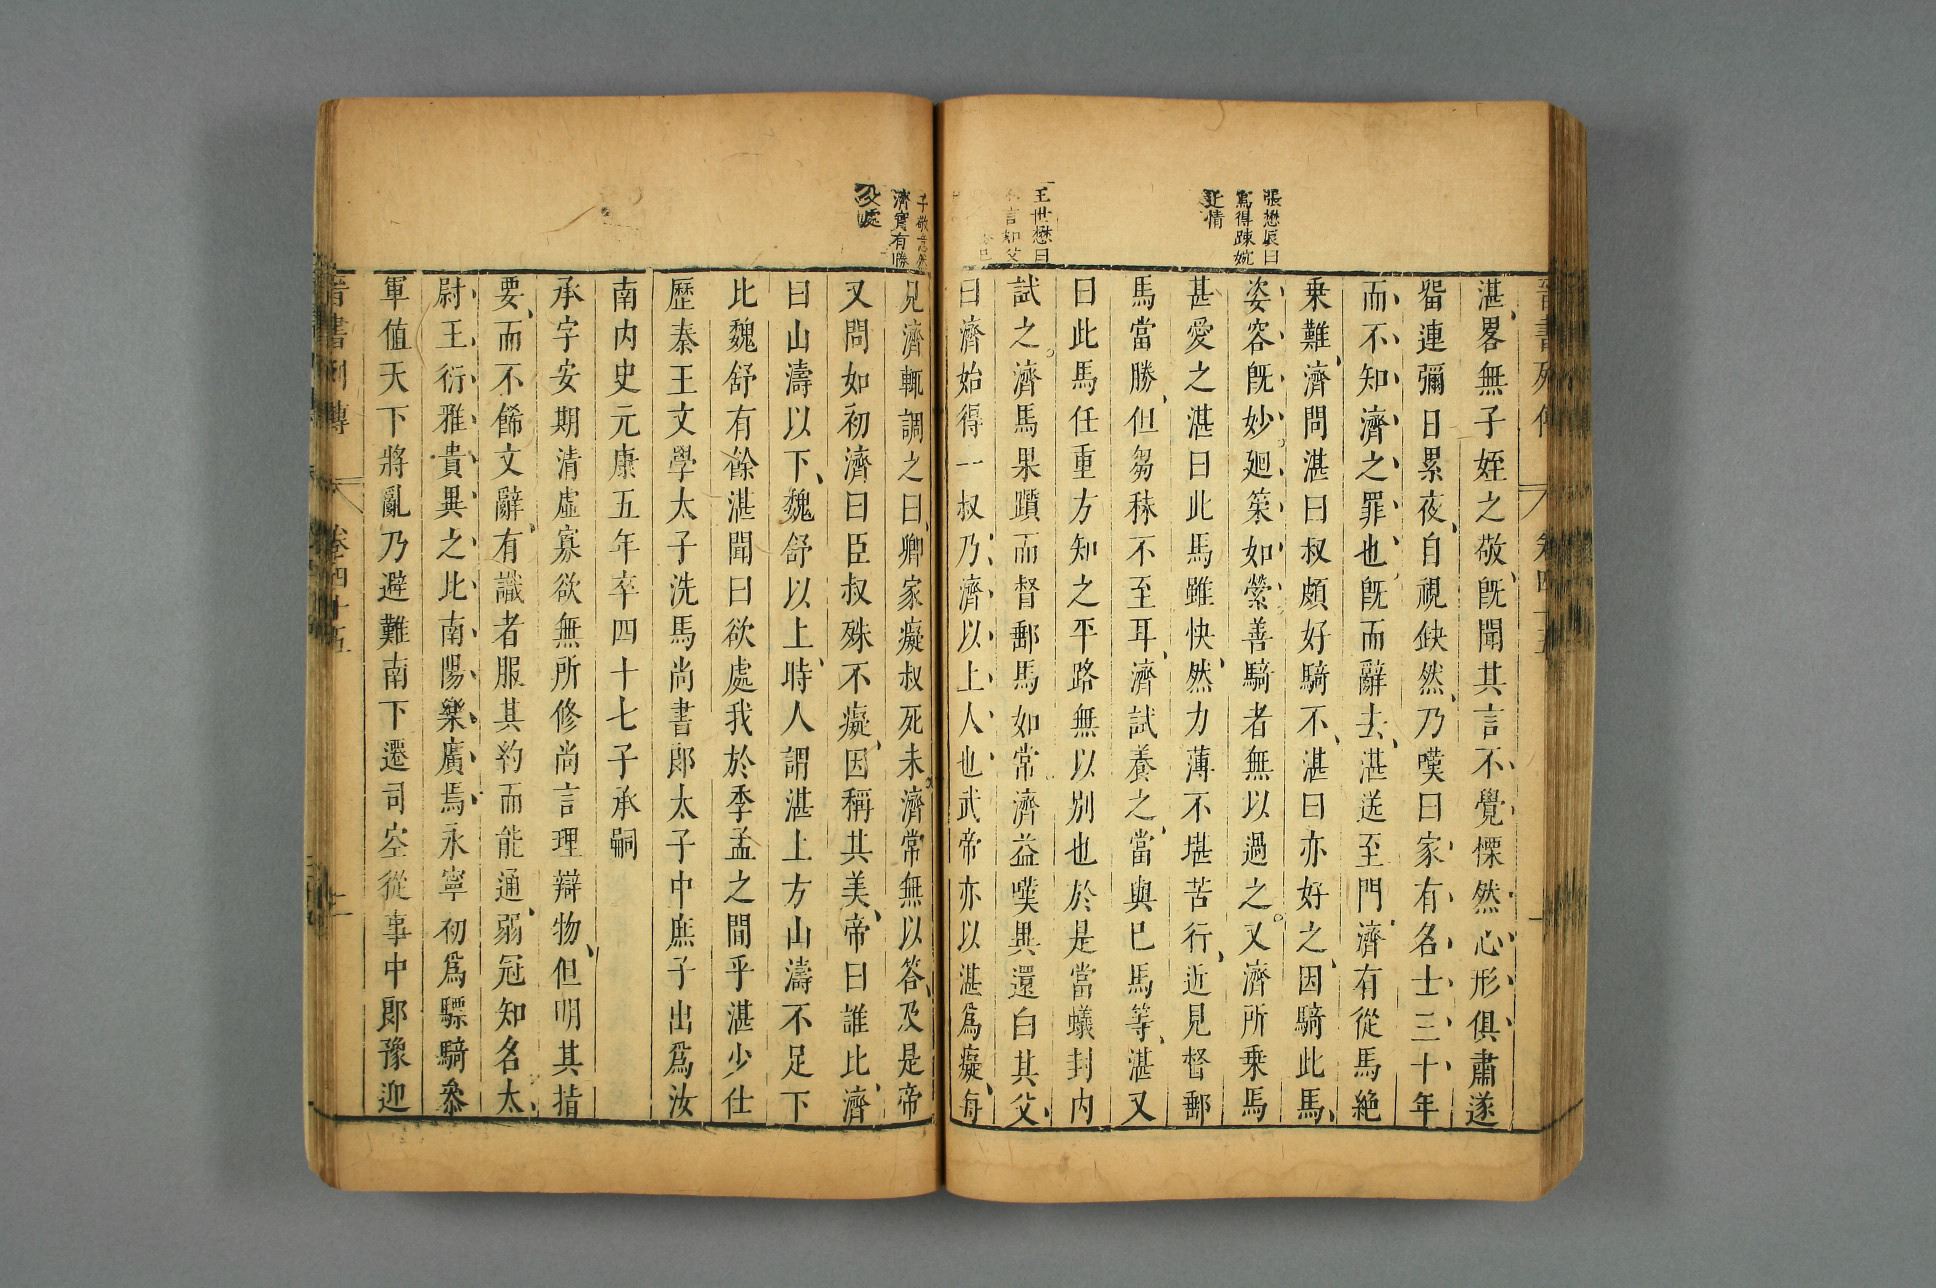 張懋辰曰
寫得踈婉
近情
王世懋曰
言知父
湛畧無子姪之敬旣聞其言不覺慄然心形俱肅遂
畱連彌日累夜自視缺然乃嘆曰家有名士三十年
而不知濟之罪也旣而辭去湛送至門濟有從馬絶
乗難濟問湛曰叔頗好騎不湛曰亦好之因騎此馬
姿容旣妙廻策如縈善騎者無以過之又濟所乗馬
甚愛之湛曰此馬雖快然力薄不堪苦行近見督郵
馬當勝但芻秣不至耳濟試養之當與巳馬等湛又
曰此馬任重方知之平路無以別也於是當蟻封内
試之濟馬果躓而督郵馬如常濟益嘆異還白其父
曰濟始得一叔乃濟以上人也武帝亦以湛爲癡每
晉書列傳 卷四十五
濟實有勝
父處
見濟輒調之曰卿家癡叔死未濟常無以答及是帝
又問如初濟曰臣叔殊不癡因稱其美帝曰誰比濟
曰山濤以下魏舒以上時人謂湛上方山濤不足下
比魏舒有餘湛聞曰欲處我於季孟之間乎湛少仕
歷秦王文學太子洗馬尚書郎太子中庶子出爲汝
南内史元康五年卒四十七子承嗣
承字安期清虛寡欲無所修尚言理辯物但明其指
要而不餙文辭有識者服其約而能通弱冠知名太
尉王衍雅貴異之比南陽樂廣焉永寧初爲驃騎參
軍值天下將亂乃避難南下遷司空從事中郎豫迎
晉書列傳 卷四十五 二